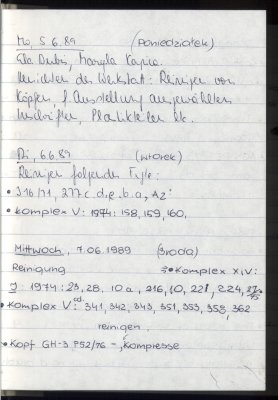 Mo, 5.6.89 (Poniedziałek)
Ela Dubis, Kapica.
der Werkstatt: Reinigen von
Köpfen, f. Ausstellung ausgewählten
Inschriften,
Di, 6.6.89 (wtorek)
Reinigen folgender
• 316/71, 277 c.d.e.b.a, A2:
• Komplex V: 1974: 158, 159, 160,
Mittwoch, 7.06.1989 (środa)
Reinigung • Komplex XIV:
J: 1974: 23, 28, 10a, 216, 10, 221, 224,
• Komplex V: cd. 341, 342, 343, 351, 353, 358, 362
reinigen,
• Kopf GH-3 P52/76 – Kompresse